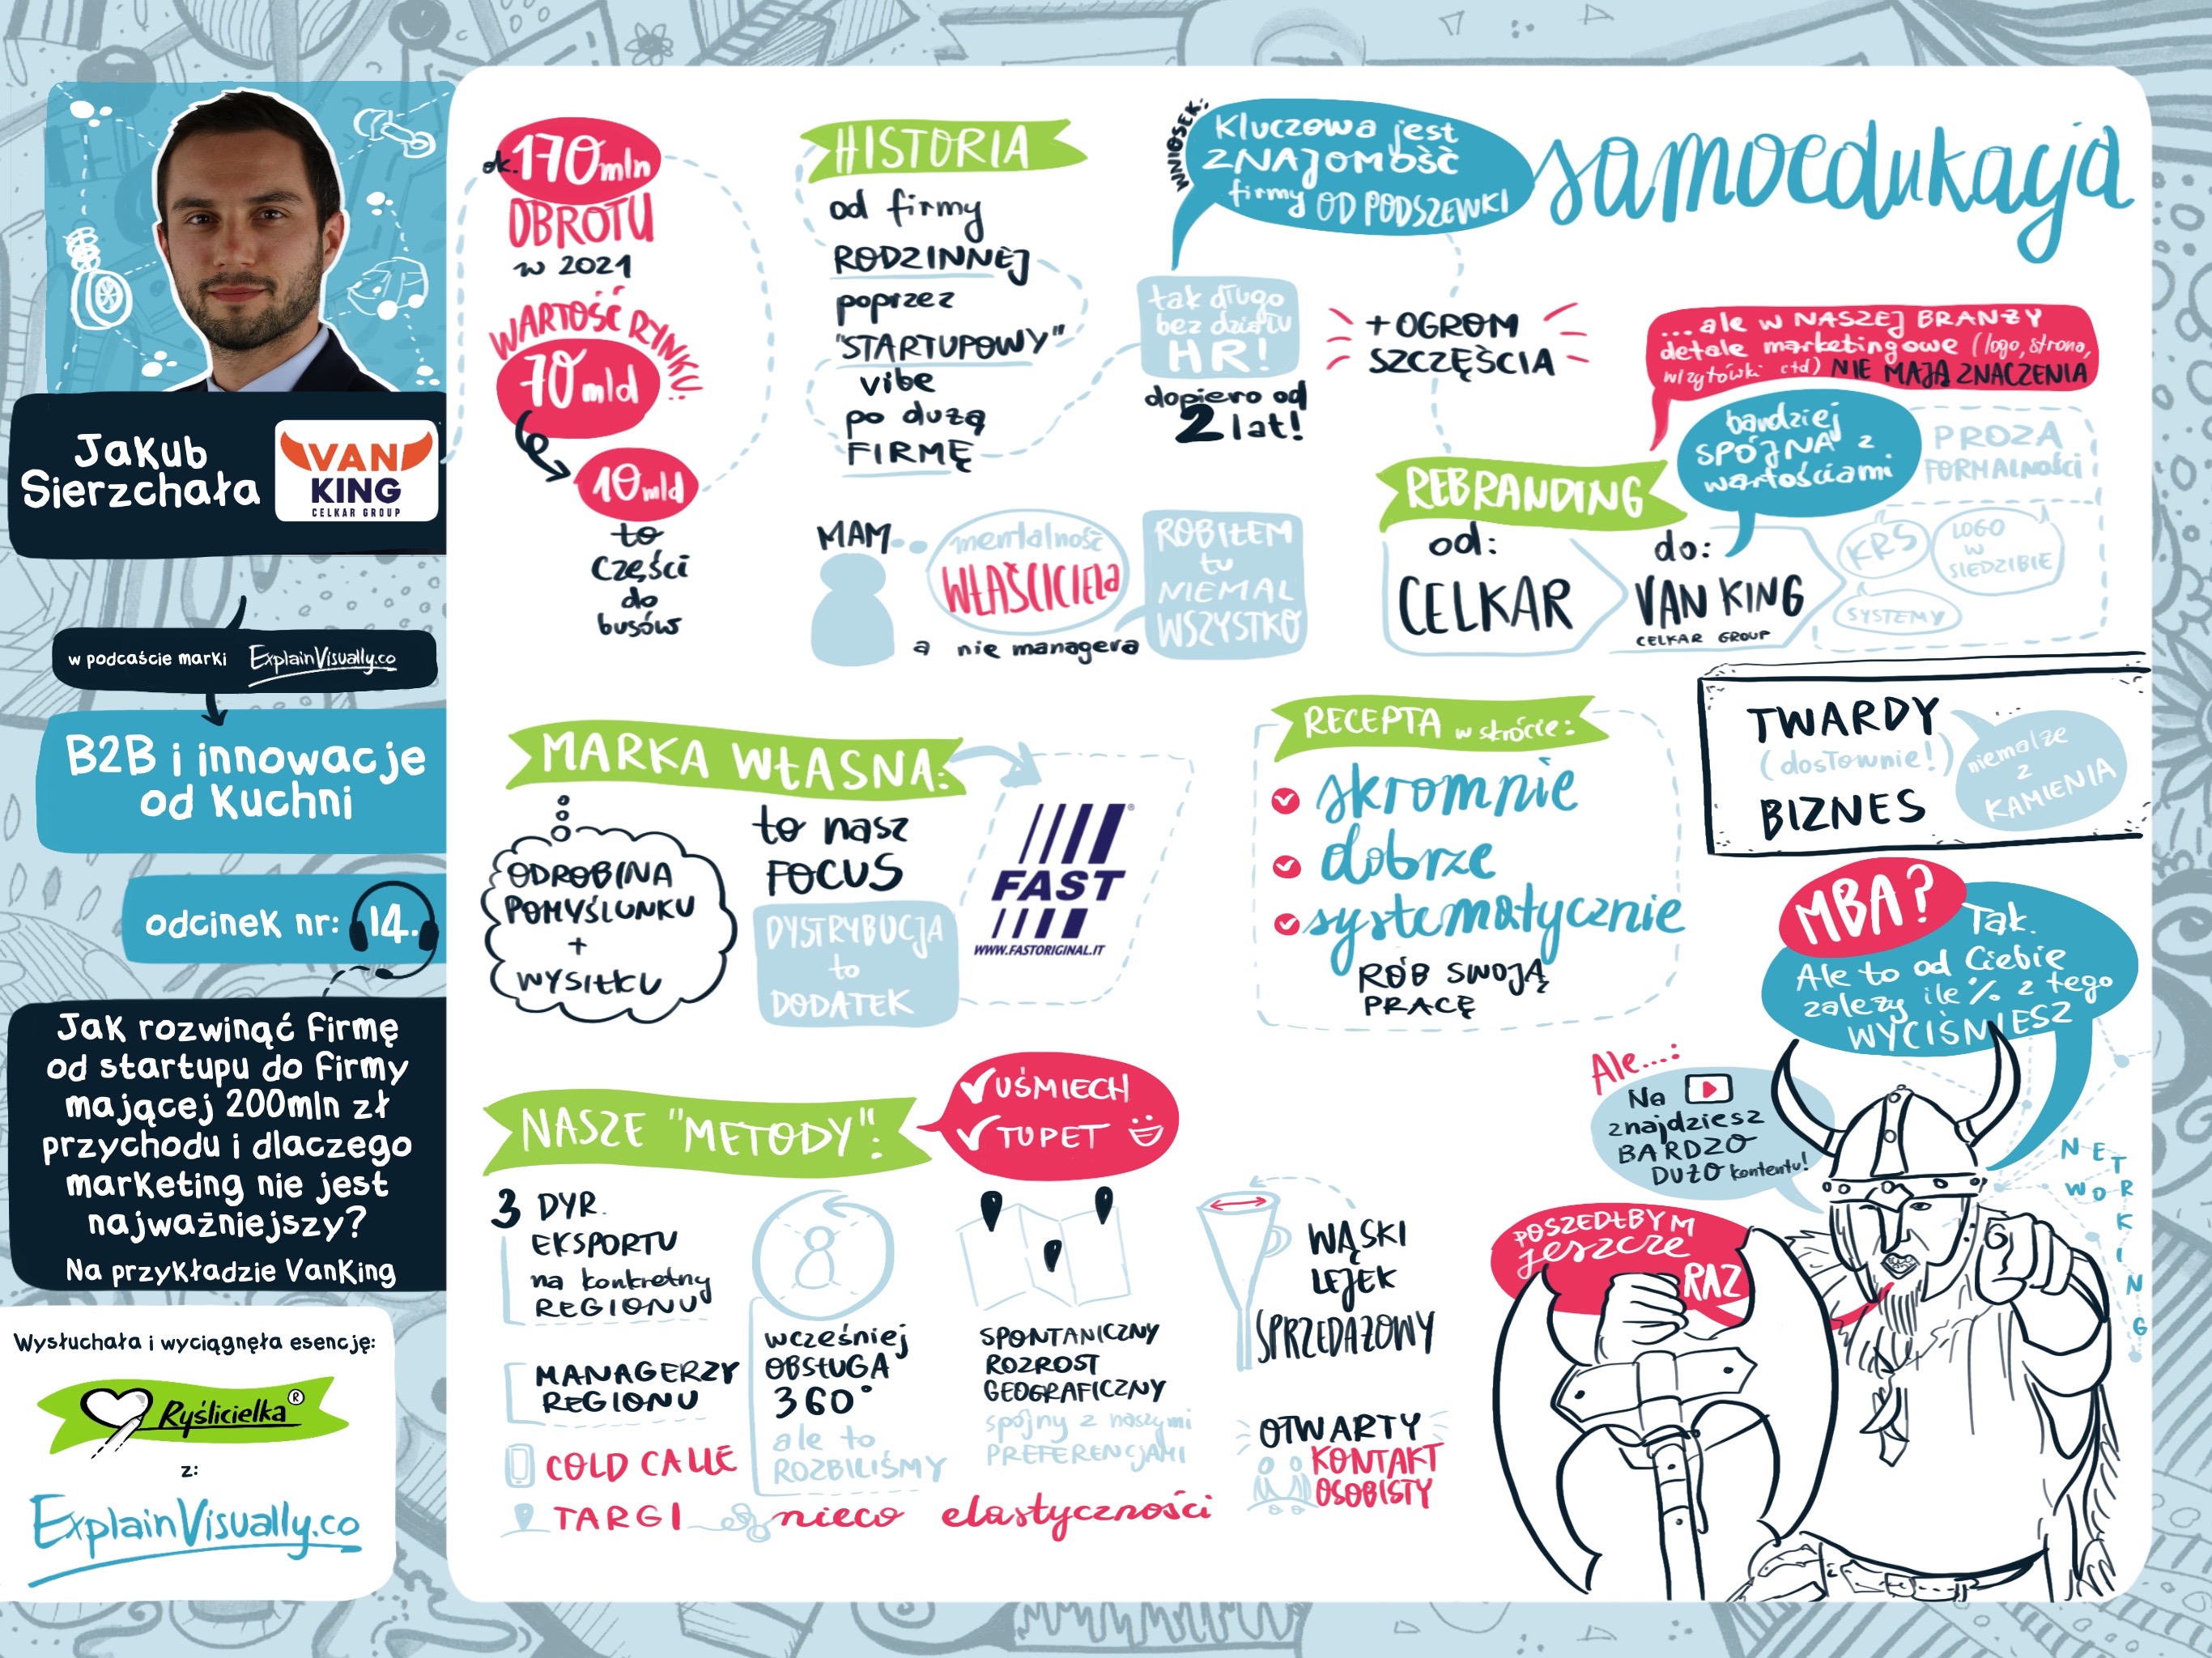 Jakub
Sierzchała
VAN
KING
CELKAR GROUP
w podcaście marki ExplainVisually.co
B2B i innowacje
od Kuchni
odcinek nr: 14.
Jak rozwinąć firmę
od startupu do firmy
mającej 200mln zł
przychodu i dlaczego
marketing nie jest
najważniejszy?
Na przykładzie VanKing
Wysłuchała i wyciągnęła esencję:
Ryślicielka®
z:
ExplainVisually.co
ok. 170 mln
OBROTU
w 2021
WARTOŚĆ RYNKU:
70 mld
10 mld
to
części
do
busów
HISTORIA
od firmy
RODZINNEJ
poprzez
"STARTUPOWY"
vibe
po dużą
FIRMĘ
WNIOSEK:
Kluczowa jest
ZNAJOMOŚĆ
firmy OD PODSZEWKI
samoedukacja
tak długo
bez działu
HR!
dopiero od
2 lat!
+ OGROM
SZCZĘŚCIA
...ale w NASZEJ BRANŻY
detale marketingowe (logo, strona,
wizytówki etd) NIE MAJĄ ZNACZENIA
bardziej
SPÓJNA z
wartościami
PROZA
FORMALNOŚCI
REBRANDING
od:
CELKAR
do:
VAN KING
CELKAR GROUP
KRS
LOGO
W
SIEDZIBIE
SYSTEMY
MAM
mentalność
WŁAŚCICIELA
a nie managera
ROBIŁEM
tu
NIEMAL
WSZYSTKO
MARKA WŁASNA:
ODROBINA
POMYŚLUNKU
+
WYSIŁKU
to nasz
FOCUS
DYSTRYBUCJA
to
DODATEK
FAST
®
WWW.FASTORIGINAL.IT
RECEPTA w skrócie:
skromnie
dobrze
systematycznie
RÓB SWOJĄ
PRACĘ
TWARDY
(dosłownie!)
BIZNES
niemalże
z
KAMIENIA
MBA?
Tak.
Ale to od Ciebie
zależy ile % z tego
WYCIŚNIESZ
Ale...:
Na
znajdziesz
BARDZO
DUŻO kontentu!
NETWORKING
POSZEDŁBYM
jeszcze
RAZ
NASZE "METODY":
UŚMIECH
TUPET
3 DYR.
EKSPORTU
na konkretny
REGIONU
MANAGERZY
REGIONU
COLD CALLE
TARGI
wcześniej
OBSŁUGA
360°
ale to
ROZBILIŚMY
SPONTANICZNY
ROZROST
GEOGRAFICZNY
spójny z naszymi
PREFERENCJAMI
nieco elastyczności
WĄSKI
LEJEK
SPRZEDAŻOWY
OTWARTY
KONTAKT
OSOBISTY